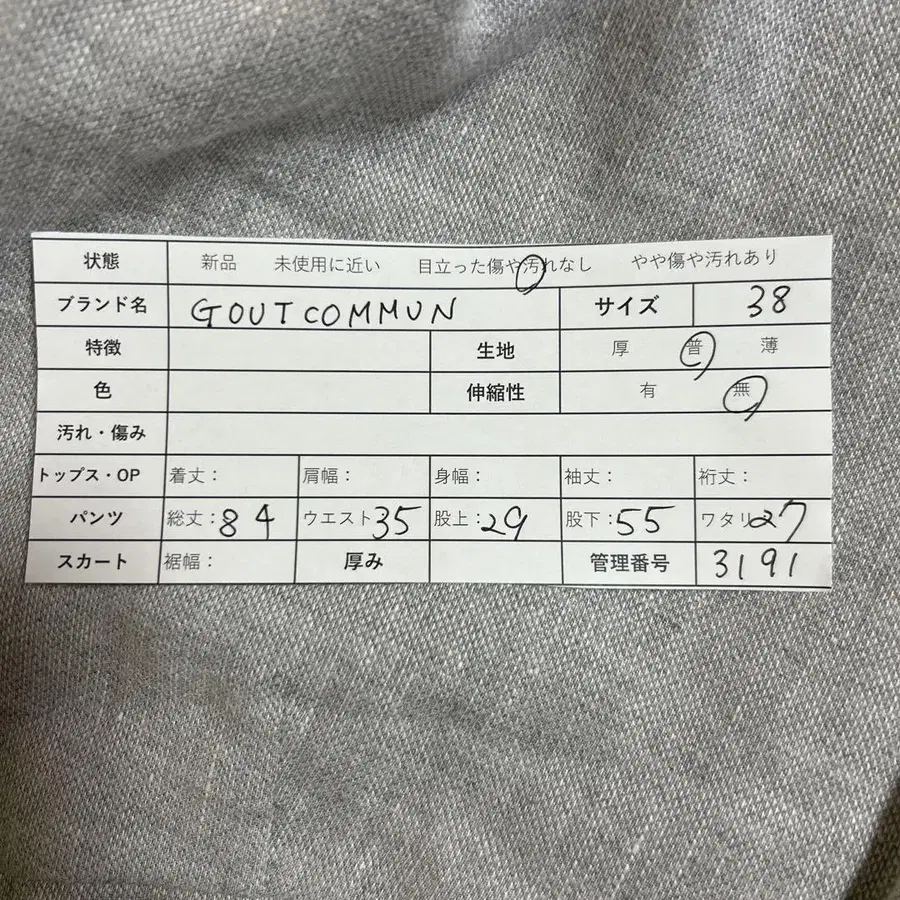 状態 新品 未使用に近い 目立った傷や汚れなし やや傷や汚れあり
ブランド名 GOUT COMMUN サイズ 38
特徴 生地 厚 普 薄
色 伸縮性 有 無
汚れ・傷み
トップス・OP 着丈: 肩幅: 身幅: 袖丈: 裄丈:
パンツ 総丈:84 ウエスト:35 股上:29 股下:55 ワタリ27
スカート 裾幅: 厚み 管理番号 3191